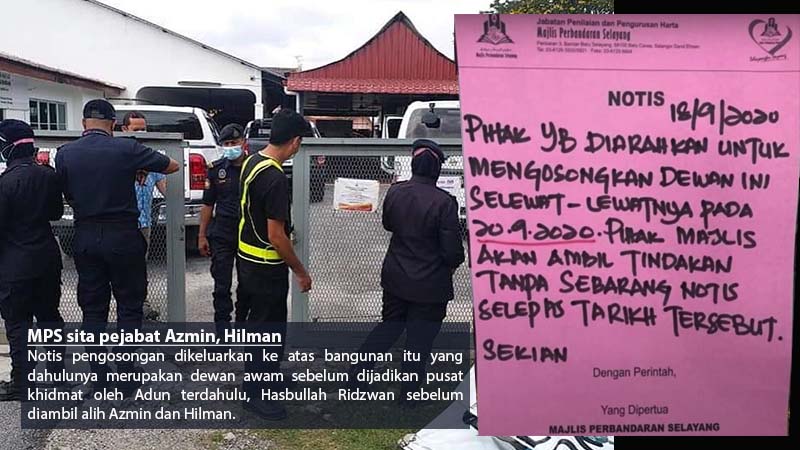 Jabatan Penilaian dan Pengurusan Harta
Majlis Perbandaran Selayang
NOTIS
18/9/2020
PIHAK YB DIARAHKAN UNTUK
MENGOSONGKAN DEWAN INI
SELEWAT-LEWATNYA PADA
20.9.2020. PIHAK MAJLIS
AKAN AMBIL TINDAKAN
TANPA SEBARANG NOTIS
SELEPAS TARIKH TERSEBUT.
SEKIAN
Dengan Perintah,
Yang Dipertua
MAJLIS PERBANDARAN SELAYANG
MPS sita pejabat Azmin, Hilman
Notis pengosongan dikeluarkan ke atas bangunan itu yang
dahulunya merupakan dewan awam sebelum dijadikan pusat
khidmat oleh Adun terdahulu, Hasbullah Ridzwan sebelum
diambil alih Azmin dan Hilman.